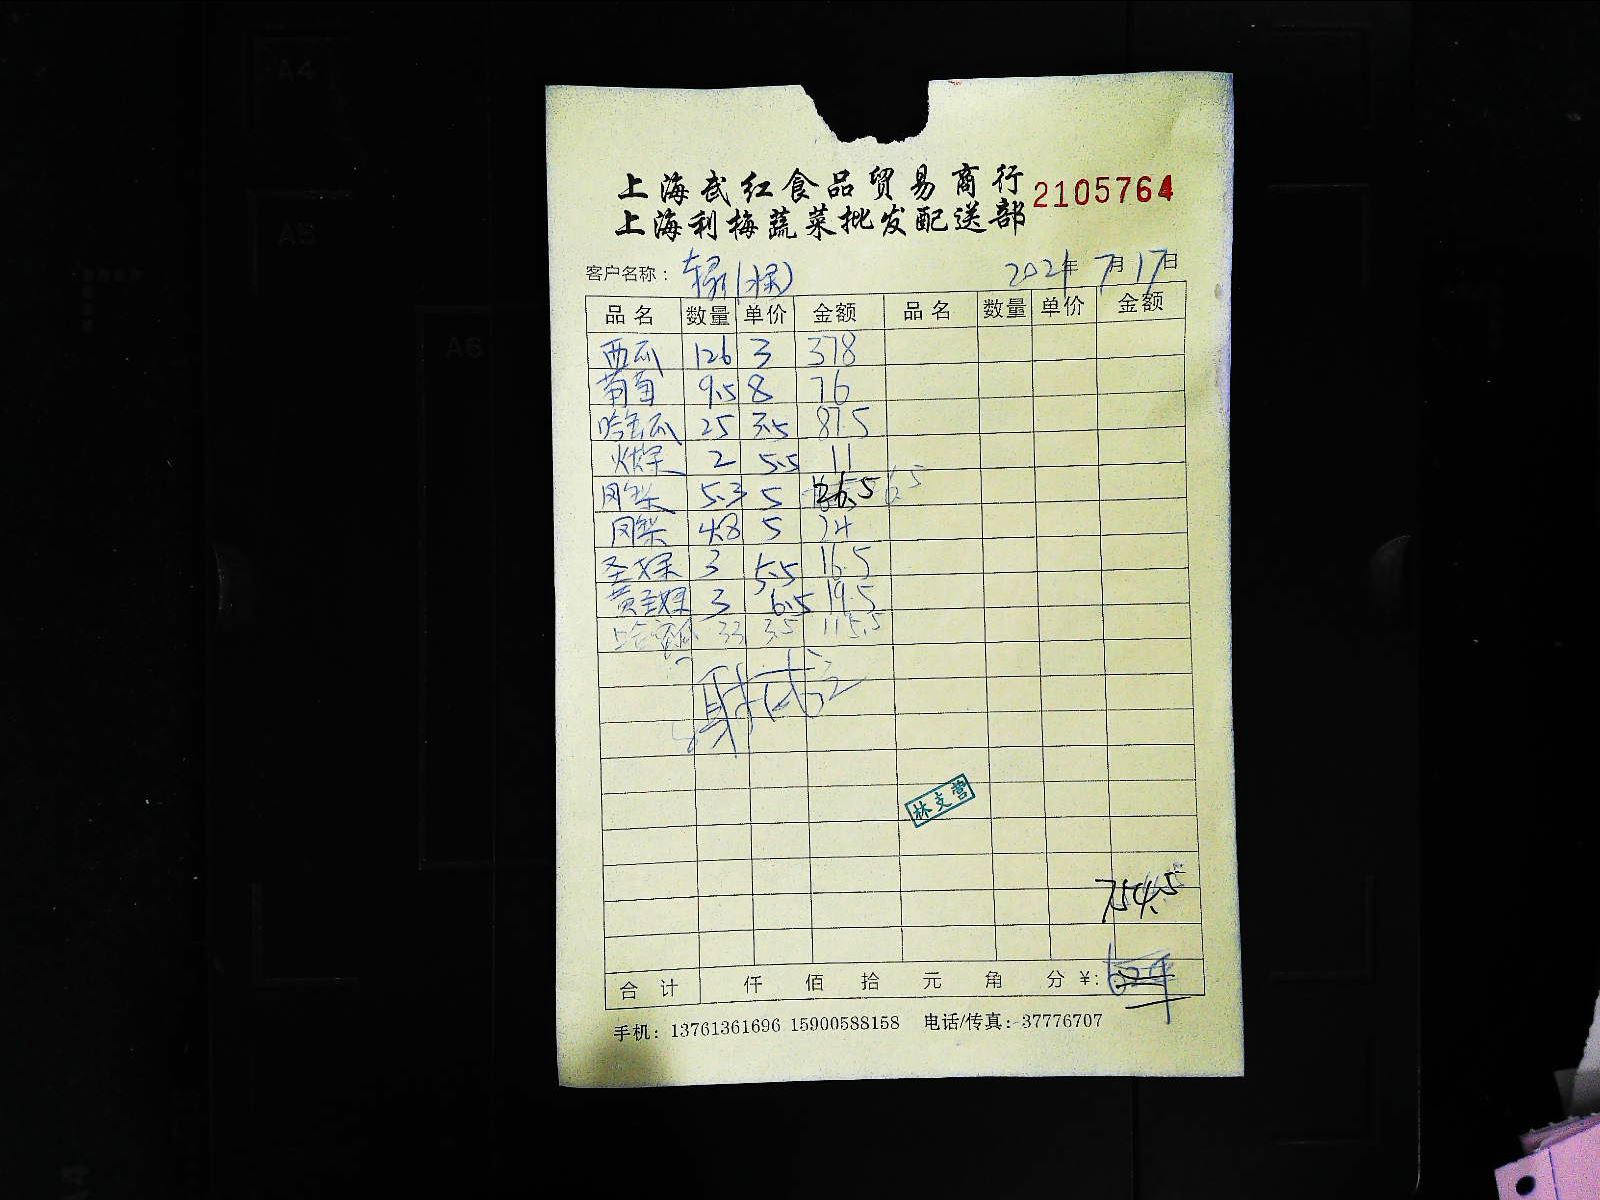 上海武红食品贸易商行
2105764
上海利梅蔬菜批发配送部
客户名称： 2021年 7月17日
品名 数量 单价 金额 品名 数量 单价 金额
西瓜 126 3 378
葡萄 9.5 8 76
哈密瓜 25 3.5 87.5
2 5.5 11
5.3 5 26.5
凤梨 4.8 5 24
圣女果 3 5.5 16.5
黄圣女果 3 6.5 19.5
哈密瓜 33 3.5 115.5
林支营
754.5
合计 仟 佰 拾 元 角 分 ¥:
手机：13761361696 15900588158 电话/传真：37776707
A4
A5
A6